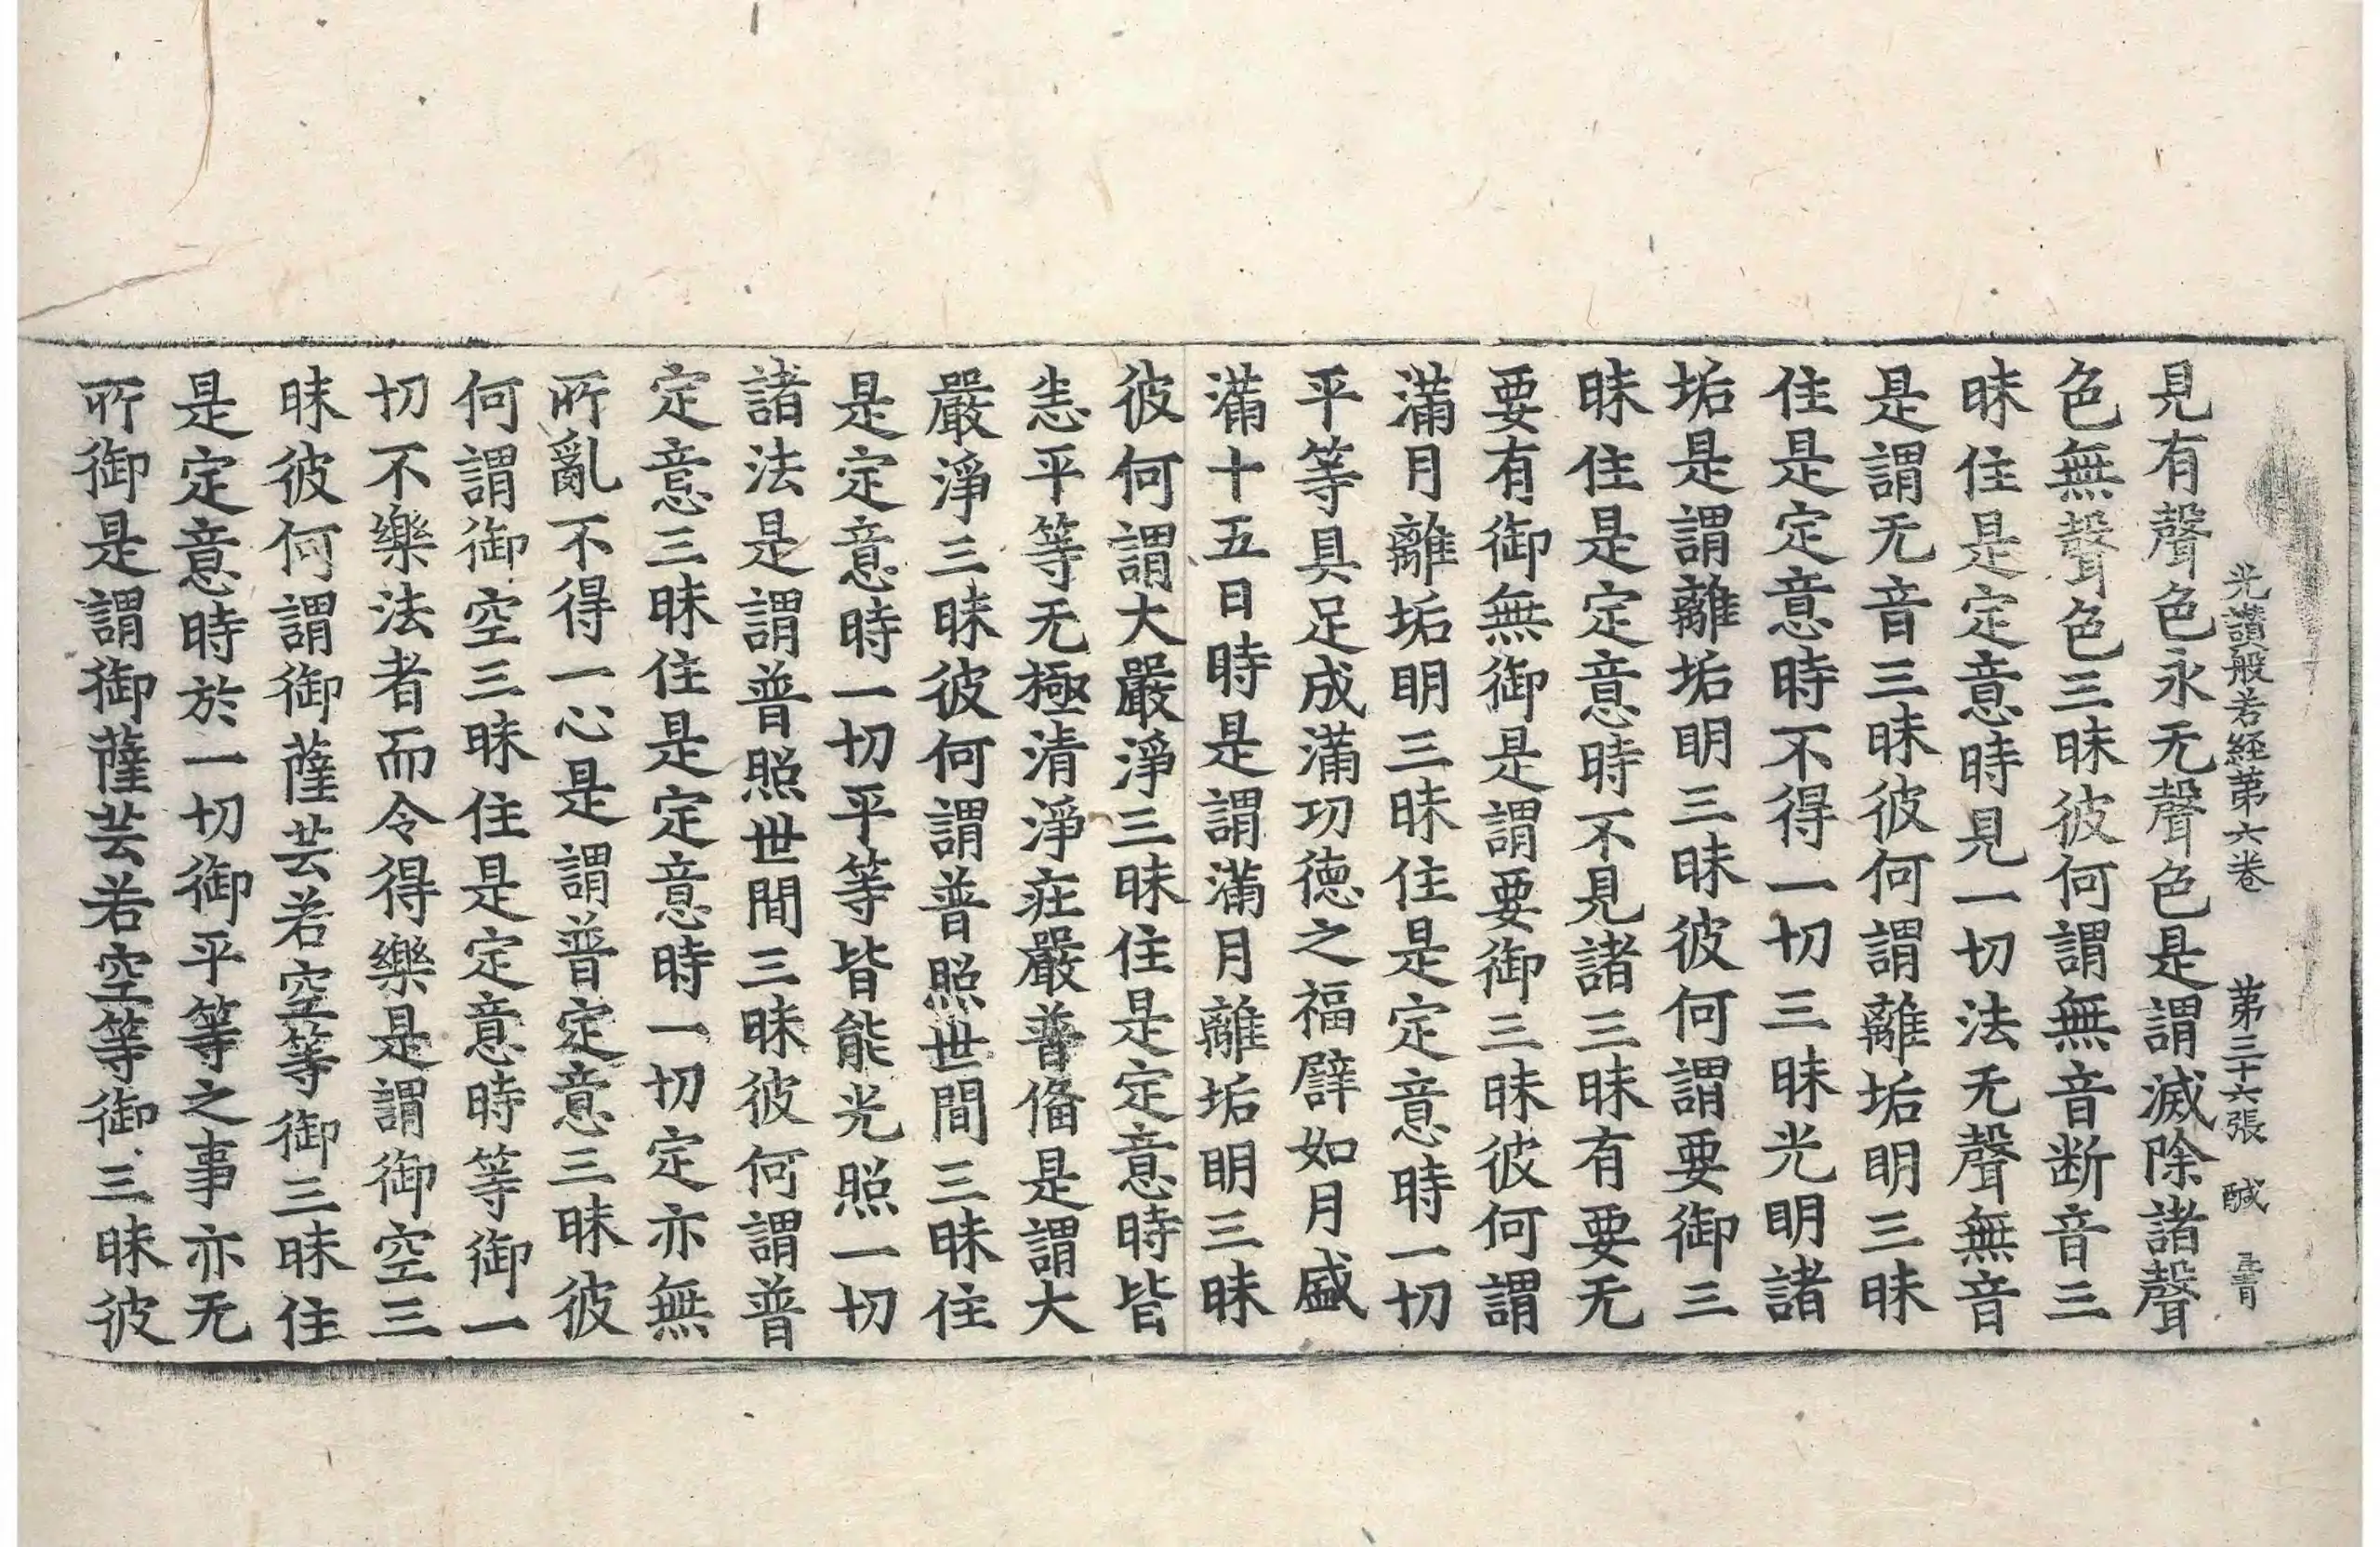 光讃般若経第六卷 第三十六張 醎
見有聲色永无聲色是謂滅除諸聲
色無聲色三昧彼何謂無音断音三
昧住是定意時見一切法无聲無音
是謂无音三昧彼何謂離垢明三昧
住是定意時不得一切三昧光明諸
垢是謂離垢明三昧彼何謂要御三
昧住是定意時不見諸三昧有要无
要有御無御是謂要御三昧彼何謂
滿月離垢明三昧住是定意時一切
平等具足成滿功德之福譬如月盛
滿十五日時是謂滿月離垢明三昧
彼何謂大嚴淨三昧住是定意時皆
恙平等无極清淨庄嚴普俻是謂大
嚴淨三昧彼何謂普照世間三昧住
是定意時一切平等皆能光照一切
諸法是謂普照世間三昧彼何謂普
定意三昧住是定意時一切定亦無
所亂不得一心是謂普定意三昧彼
何謂御空三昧住是定意時等御一
切不樂法者而令得樂是謂御空三
昧彼何謂御薩芸若空等御三昧住
是定意時於一切御平等之事亦无
所御是謂御薩芸若空等御三昧彼